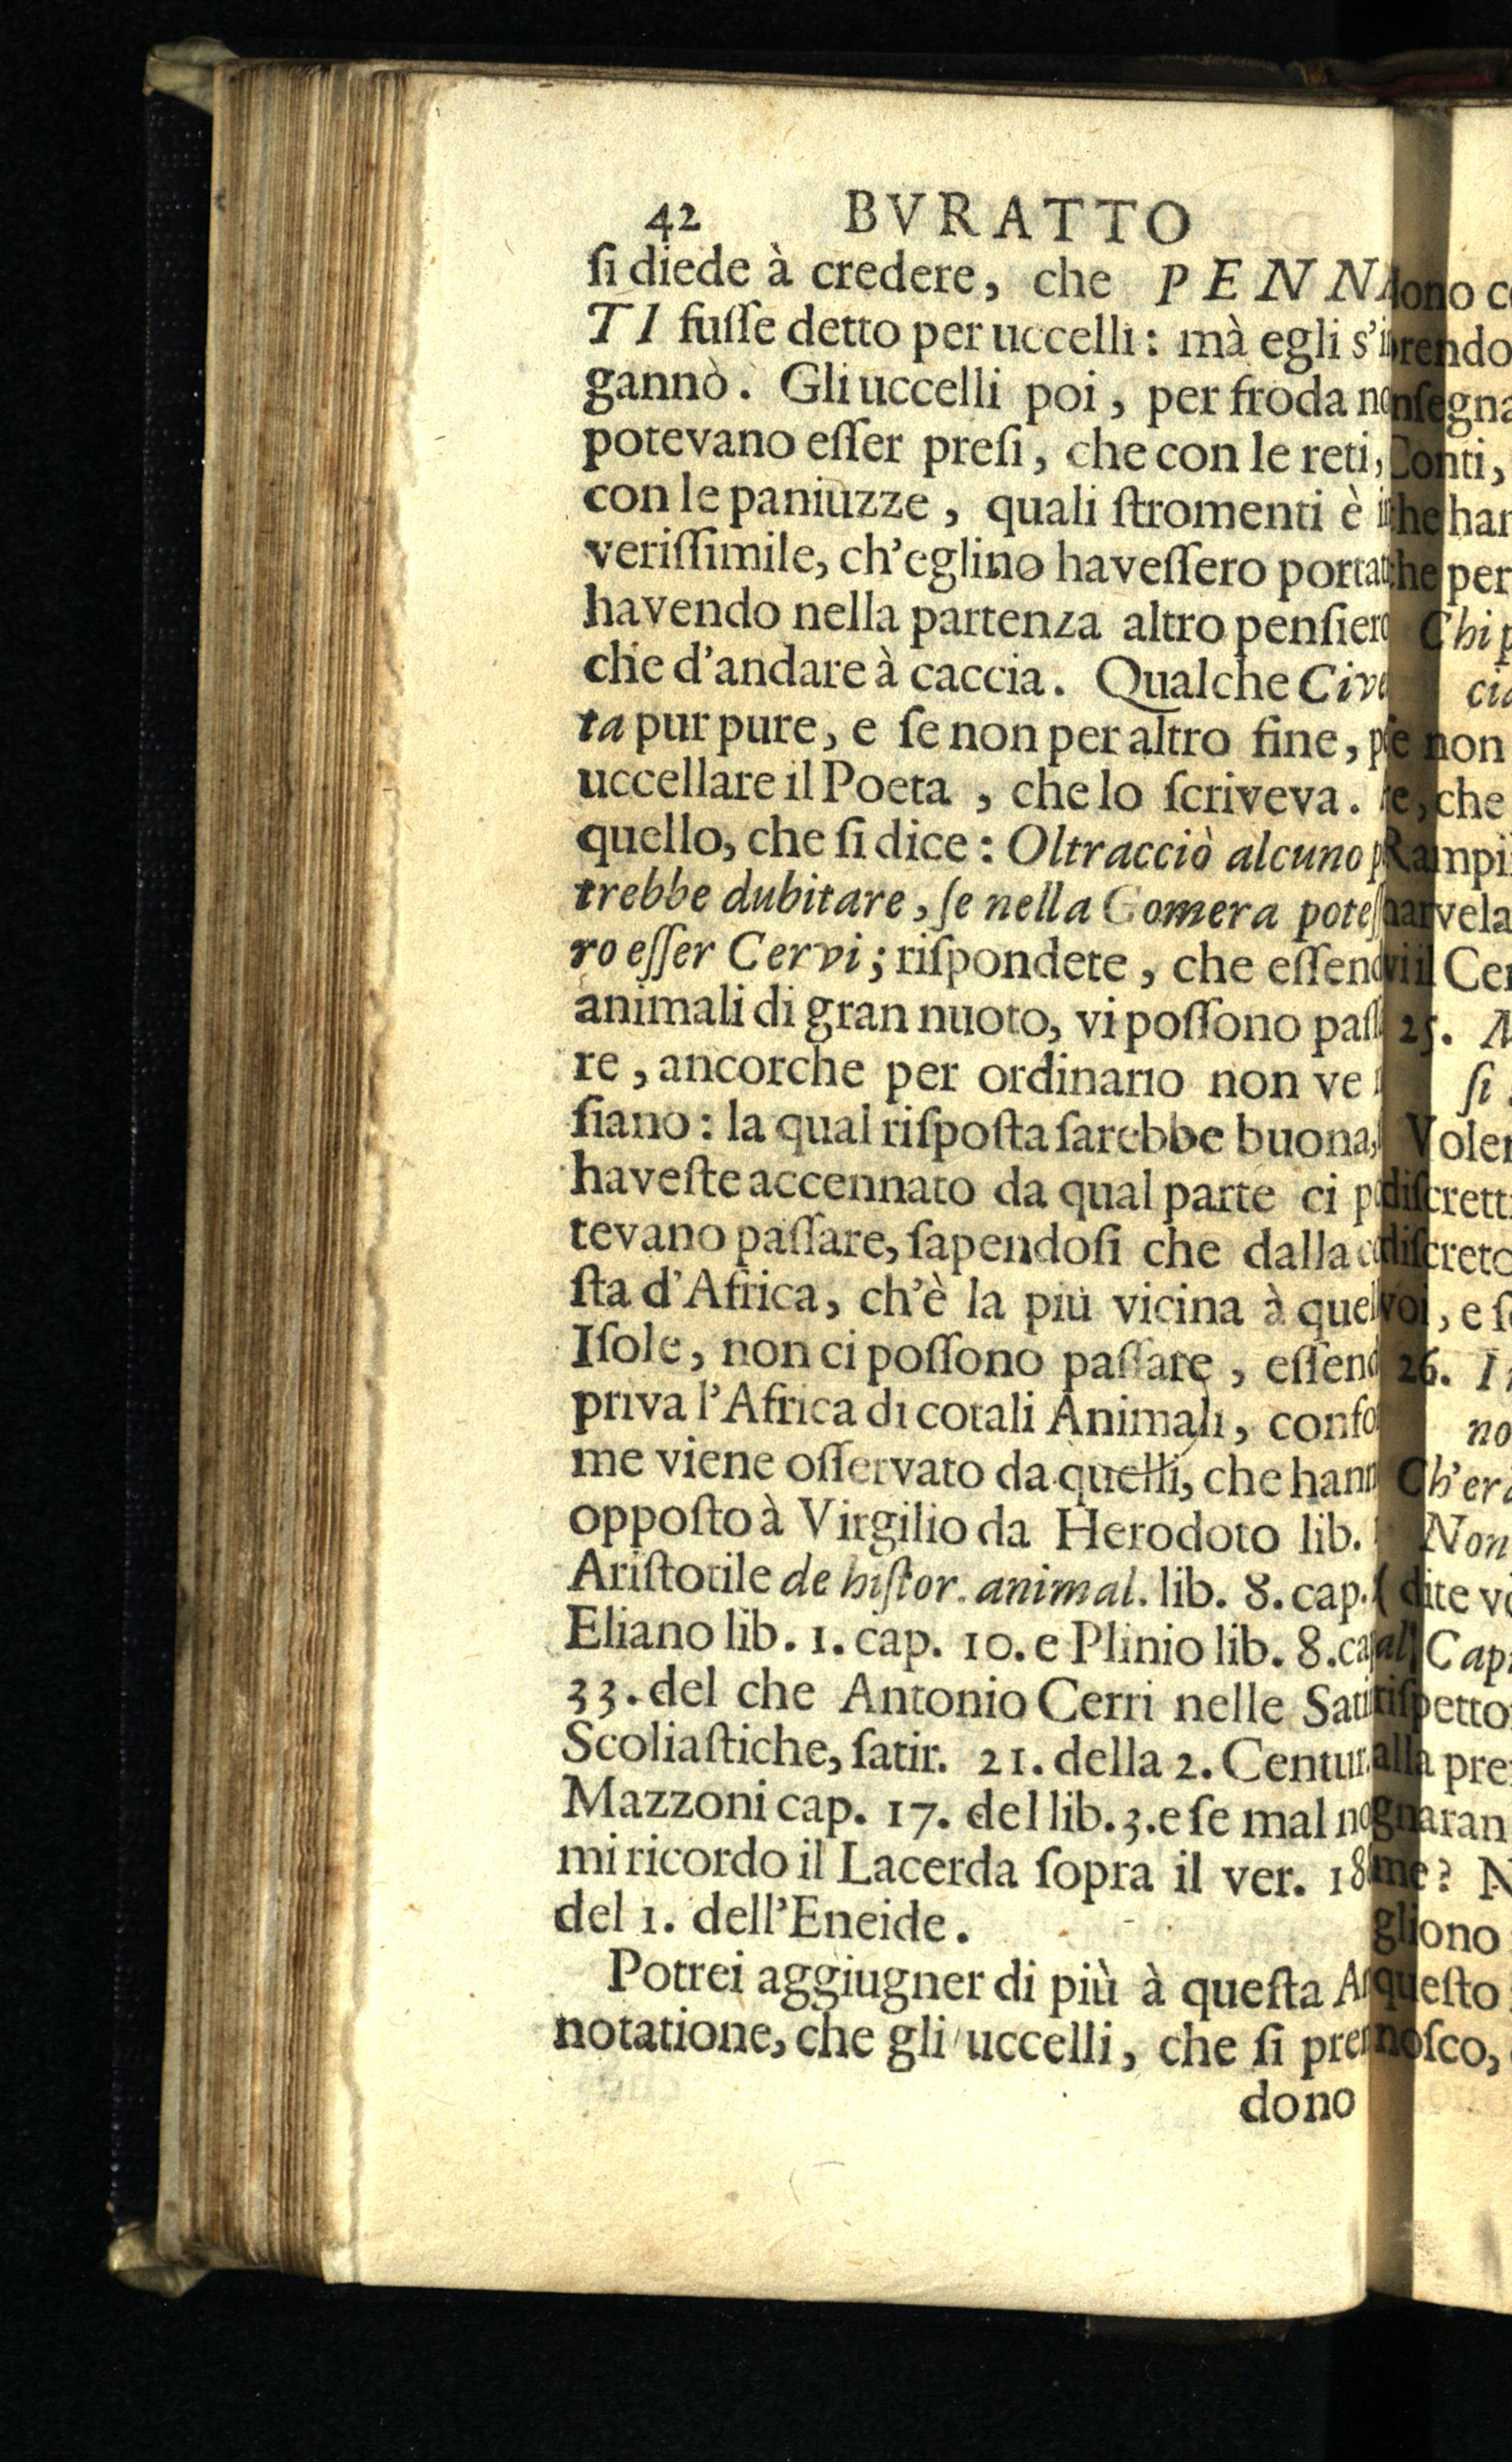 42 BVRATTO
ſi diede à credere, che PENN
TI fuſſe detto per uccelli: mà egli s'in
gannò. Gli uccelli poi, per froda non
potevano eſſer preſi, che con le reti,
con le paniuzze, quali ſtromenti è
veriſſimile, ch'eglino haveſſero
havendo nella partenza altro penſiero
che d'andare à caccia. Qualche Cive
ta pur pure, e ſe non per altro fine,
uccellare il Poeta, che lo ſcriveva.
quello, che ſi dice: Oltracciò alcuno
trebbe dubitare, ſe nella Gomera poteſ
ro eſſer Cervi; riſpondete, che eſſend
animali di gran nuoto, vi poſſono paſſ
re, ancorche per ordinario non ve
ſiano: la qual riſpoſta ſarebbe buona,
haveſte accennato da qual parte ci
tevano paſſare, ſapendoſi che dalla
ſta d'Africa, ch'è la più vicina à quel
Iſole, non ci poſſono paſſare, eſſend
priva l'Africa di cotali Animali, confo
me viene oſſervato da quelli, che hann
oppoſto à Virgilio da Herodoto lib.
Ariſtotile de hiſtor. animal. lib. 8. cap.
Eliano lib. 1. cap. 10. e Plinio lib. 8. ca
33. del che Antonio Cerri nelle Sati
Scoliaſtiche, ſatir. 21. della 2. Centur.
Mazzoni cap. 17. del lib. 3. e ſe mal no
mi ricordo il Lacerda ſopra il ver. 18
del 1. dell'Eneide.
Potrei aggiugner di più à queſta
notatione, che gli uccelli, che ſi pren
dono